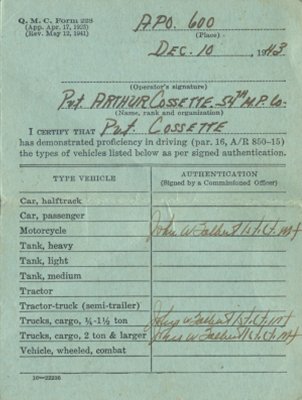 Q. M. C. Form 228
(App. Apr. 17, 1923)
(Rev. May 12, 1941)
A.P.O. 600
(Place)
DEC. 10, 1943
(Operator's signature)
Pvt. ARTHUR COSSETTE - 54th M.P. Co.
(Name, rank and organization)
I CERTIFY THAT Pvt. COSSETTE
has demonstrated proficiency in driving (par. 16, A/R 850–15)
the types of vehicles listed below as per signed authentication.
TYPE VEHICLE AUTHENTICATION
(Signed by a Commissioned Officer)
Car, halftrack
Car, passenger
Motorcycle John W 1st Lt.
Tank, heavy
Tank, light
Tank, medium
Tractor
Tractor-truck (semi-trailer)
Trucks, cargo, ¼-1½ ton John W 1st Lt.
Trucks, cargo, 2 ton & larger John W 1st Lt.
Vehicle, wheeled, combat